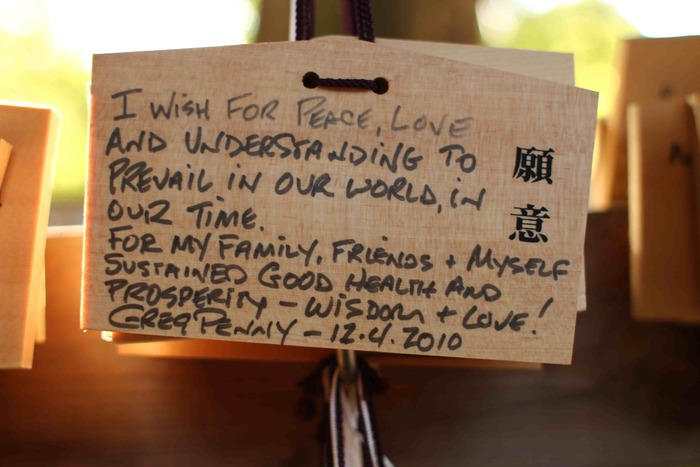 I WISH FOR PEACE, LOVE
AND UNDERSTANDING TO
PREVAIL IN OUR WORLD, IN
OUR TIME.
FOR MY FAMILY, FRIENDS + MYSELF
SUSTAINED GOOD HEALTH AND
PROSPERITY – WISDOM + LOVE!
GREG PENNY – 12.4.2010
願意